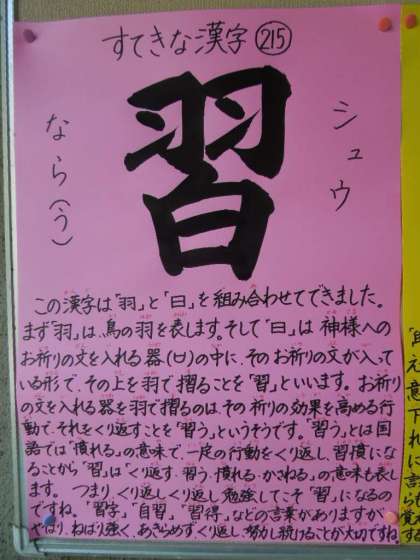 すてきな漢字 215
習
シュウ
なら(う)
この漢字は「羽」と「曰」を組み合わせてできました。
まず「羽」は、鳥の羽を表します。そして「曰」は神様への
お祈りの文を入れる器(口)の中に、そのお祈りの文が入って
いる形で、その上を羽で摺ることを「習」といいます。お祈り
の文を入れる器を羽で摺るのは、その祈りの効果を高める行
動で、それをくり返すことを「習う」というそうです。「習う」とは国
語では「慣れる」の意味で、一定の行動をくり返し、習慣にな
ることから「習」は「くり返す・習う・慣れる・かさねる」の意味も表し
ます。つまり、くり返しくり返し勉強してこそ「習」になるの
ですね。「習字」「自習」「習得」などの言葉がありますが、
やはり、ねばり強く、あきらめずくり返し、努力し続けることが大切ですね。